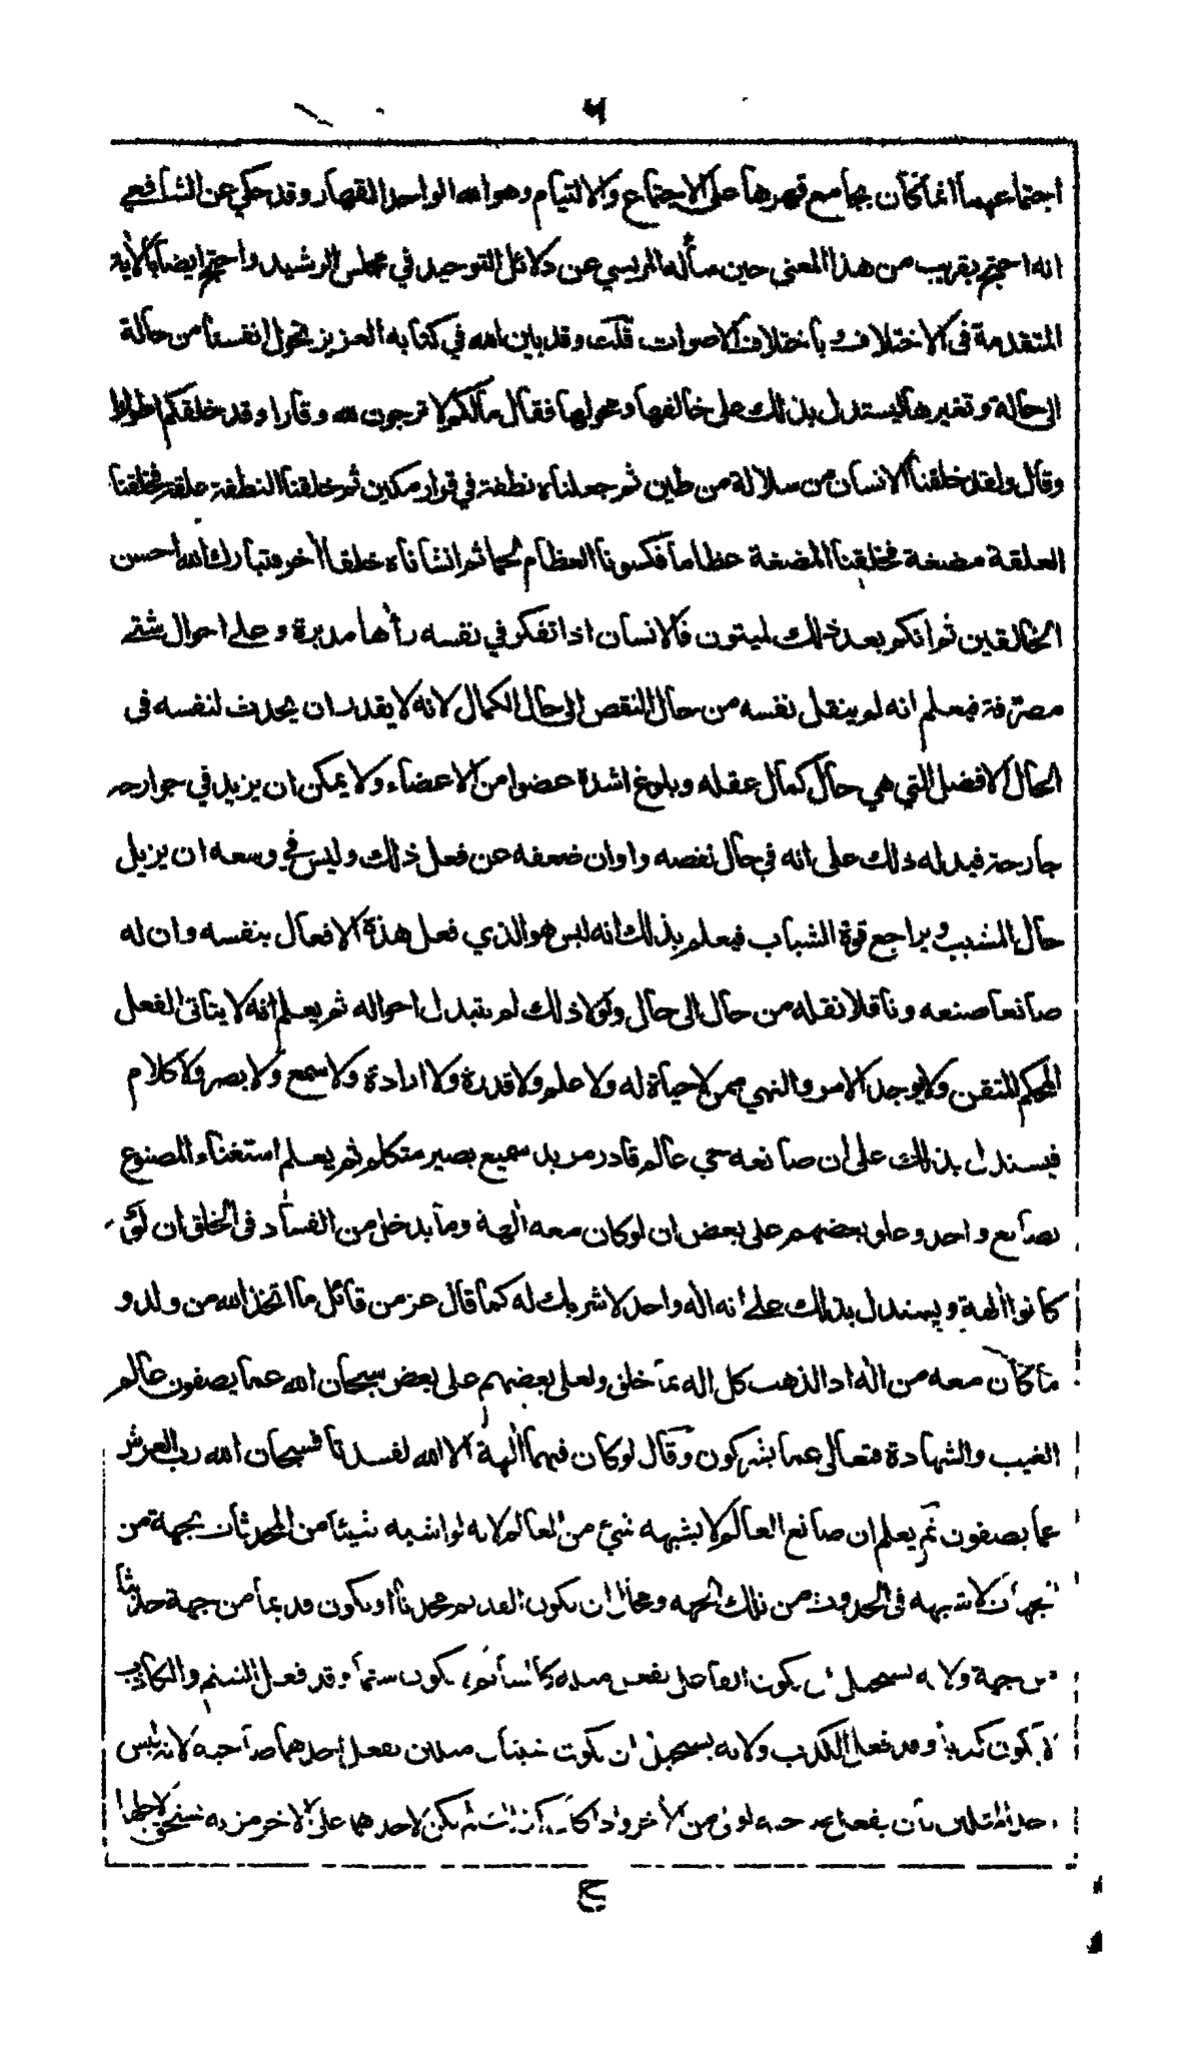 ٦
اجتماعهما انما كان بجامع قهرها على الاجتماع والالتيام وهو الله الواحد القهار وقد حكي عن الشافعي
انه احتج بقريب من هذا المعنى حين سأله المريسي عن دلائل التوحيد في مجلس الرشيد واحتج ايضا بالآية
المتقدمة فى الاختلاف باختلاف الاصوات قلت وقد بين الله في كتابه العزيز تحول انفسنا من حالة
الى حالة وتغيرها ليستدل بذلك على خالقها ومحولها فقال مالكم لا ترجون لله وقارا وقد خلقكم اطوارا
وقال ولقد خلقنا الانسان من سلالة من طين ثم جعلناه نطفة في قرار مكين ثم خلقنا النطفة علقة فخلقنا
العلقة مضغة فخلقنا المضغة عظاما فكسونا العظام لحما ثم انشاناه خلقا اخر فتبارك الله احسن
الخالقين ثم انكم بعد ذلك لميتون فالانسان اذا تفكر في نفسه رأها مدبرة وعلى احوال شتى
مصرفة فيعلم انه لم ينقل نفسه من حال النقص الى حال الكمال لانه لا يقدر ان يحدث لنفسه فى
الحال الافضل التي هي حال كمال عقله وبلوغ اشده عضوا من الاعضاء ولا يمكن ان يزيد في جوارحه
جارحة فيدله ذلك على انه في حال نقصه واوان ضعفه عن فعل ذلك وليس في وسعه ان يزيل
حال المشيب ويراجع قوة الشباب فيعلم بذلك انه ليس هو الذي فعل هذة الافعال بنفسه وان له
صانعا صنعه وناقلا نقله من حال الى حال ولولا ذلك لم تتبدل احواله ثم يعلم انه لا يتاتى الفعل
المحكم المتقن ولا يوجد الامر والنهي ممن لا حياة له ولا علم ولا قدرة ولا ارادة ولا سمع ولا بصر ولا كلام
فيستدل بذلك على ان صانعه حي عالم قادر مريد سميع بصير متكلم ثم يعلم استغناء المصنوع
بصانع واحد وعلو بعضهم على بعض ان لو كان معه الهة وما يدخل من الفساد فى الخلق ان لو
كانوا الهة ويستدل بذلك على انه اله واحد لا شريك له كما قال عز من قائل ما اتخذ الله من ولد و
ما كان معه من اله اذا لذهب كل اله بما خلق ولعلى بعضهم على بعض سبحان الله عما يصفون عالم
الغيب والشهادة فتعالى عما يشركون وقال لو كان فيهما الهة الا الله لفسدتا فسبحان الله رب العرش
عما يصفون ثم يعلم ان صانع العالم لا يشبهه شيئ من العالم لانه لو اشبه شيئا من المحدثات بجهة من
الجهات لاشبهه فى الحدوث من تلك الجهه ومحال ان يكون القديم محدثا او يكون قديما من جهة حديثا
من جهة ولانه يستحيل ان يكون الفاعل يفعل مثله كالشاتم يكون شتما وقد فعل الشتم والكاذب
لا يكون كذبا وقد فعل الكذب ولانه يستحيل ان يكون شيئان مثلان يفعل احدهما صاحبه لانه ليس
احد المثلين بان يفعل صاحبه اولى من الاخر واذا كان كذلك لم يكن لاحدهما على الاخر مزية يستحق لاجلها